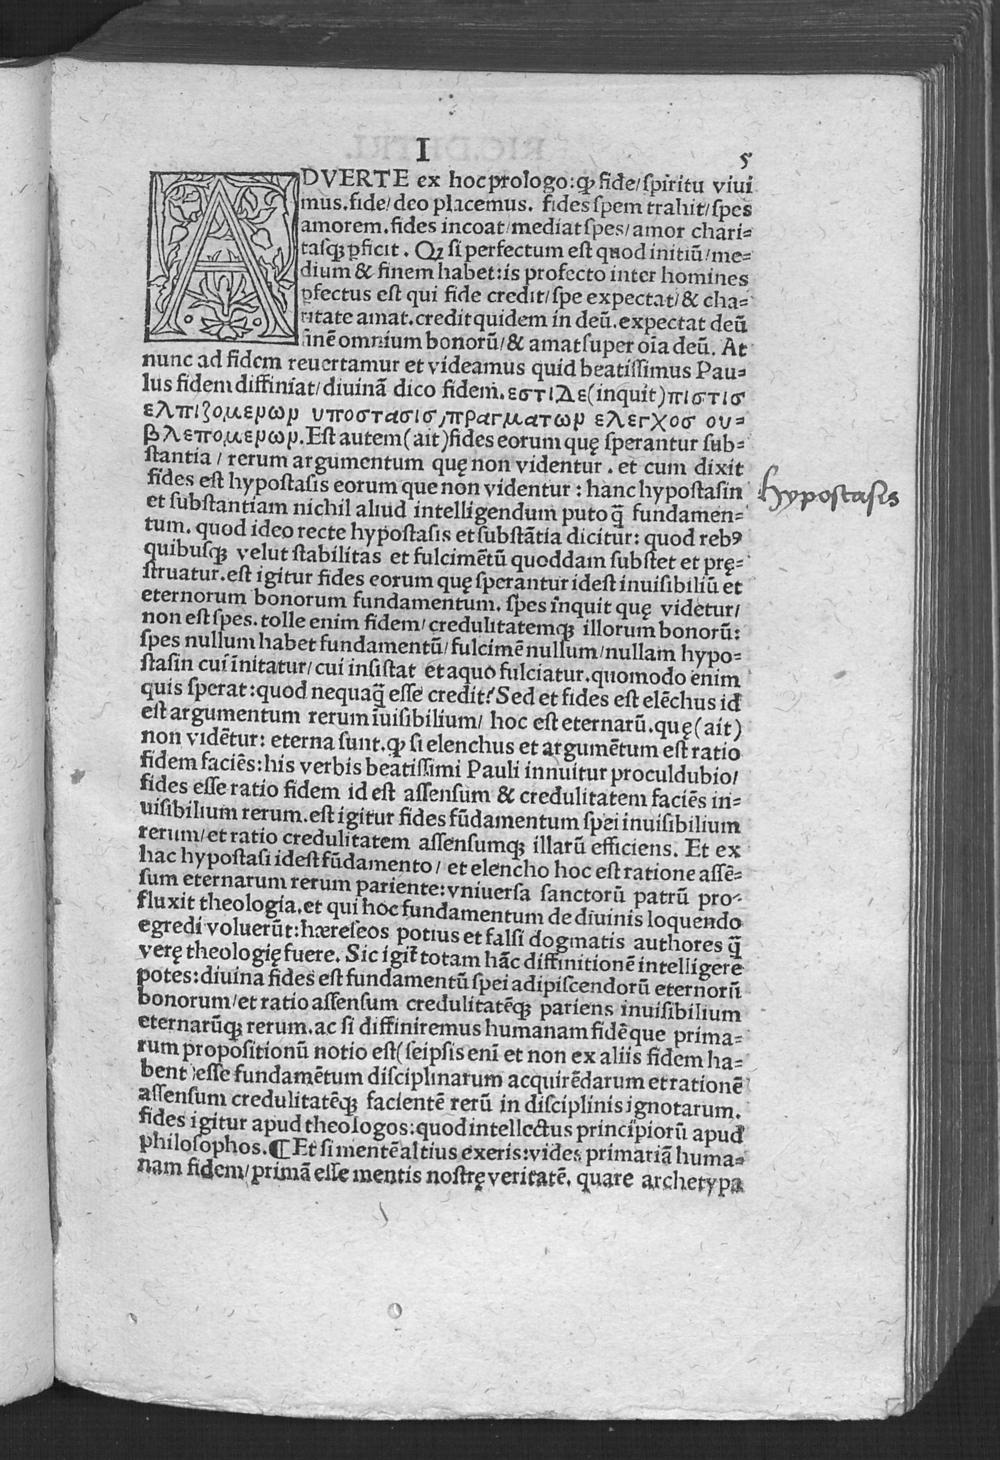 I
5
ADVERTE ex hoc prologo:ꝙ fide/spiritu viui
mus.fide/deo placemus. fides spem trahit/spes
amorem.fides incoat/mediat spes/amor chari⸗
tasqꝫ ꝑficit. Qꝫ si perfectum est quod initiū/me⸗
dium & finem habet:is profecto inter homines
ꝑfectus est qui fide credit/spe expectat/& cha⸗
ritate amat.credit quidem in deū.expectat deū
finē omnium bonorū/& amat super oīa deū. At
nunc ad fidem reuertamur et videamus quid beatissimus Pau⸗
lus fidem diffiniat/diuinā dico fidem.εστι Δε(inquit)πιστισ
ελπιζομενων υποστασισ,πραγματων ελεγχοσ ου⸗
βλεπομενων.Est autem(ait)fides eorum quę sperantur sub⸗
stantia/rerum argumentum quę non videntur. et cum dixit
fides est hypostasis eorum que non videntur: hanc hypostasin
hypostasis
et substantiam nichil aliud intelligendum puto q̄ fundamen⸗
tum. quod ideo recte hypostasis et substātia dicitur: quod rebꝯ
quibusqꝫ velut stabilitas et fulcimētū quoddam substet et prę⸗
struatur.est igitur fides eorum quę sperantur idest inuisibiliū et
eternorum bonorum fundamentum. spes inquit quę videtur/
non est spes.tolle enim fidem/credulitatemqꝫ illorum bonorū:
spes nullum habet fundamentū/fulcimē nullum/nullam hypo⸗
stasin cui īnitatur/cui insistat et aquo fulciatur.quomodo enim
quis sperat:quod nequaq̄ esse credit?Sed et fides est elēchus id
est argumentum rerum īuisibilium/ hoc est eternarū.quę(ait)
non vidētur: eterna sunt.ꝙ si elenchus et argumētum est ratio
fidem faciēs:his verbis beatissimi Pauli innuitur proculdubio/
fides esse ratio fidem id est assensum & credulitatem faciēs in⸗
uisibilium rerum.est igitur fides fūdamentum spei inuisibilium
rerum/et ratio credulitatem assensumqꝫ illarū efficiens. Et ex
hac hypostasi idest fūdamento/et elencho hoc est ratione assē⸗
sum eternarum rerum pariente:vniuersa sanctorū patrū pro⸗
fluxit theologia.et qui hoc fundamentum de diuinis loquendo
egredi voluerūt:hæreseos potius et falsi dogmatis authores q̄
verę theologię fuere. Sic igit̄ totam hāc diffinitionē intelligere
potes:diuina fides est fundamentū spei adipiscendorū eternorū
bonorum/et ratio assensum credulitatēqꝫ pariens inuisibilium
eternarūqꝫ rerum.ac si diffiniremus humanam fidē que prima⸗
rum propositionū notio est(seipsis enī et non ex aliis fidem ha⸗
bent)esse fundamētum disciplinarum acquirēdarum et rationē
assensum credulitatēqꝫ facientē rerū in disciplinis ignotarum.
fides igitur apud theologos:quod intellectus principiorū apud
philosophos.¶Et si mentē altius exeris:vides primariā huma⸗
nam fidem/primā esse mentis nostrę veritatē. quare archetypa